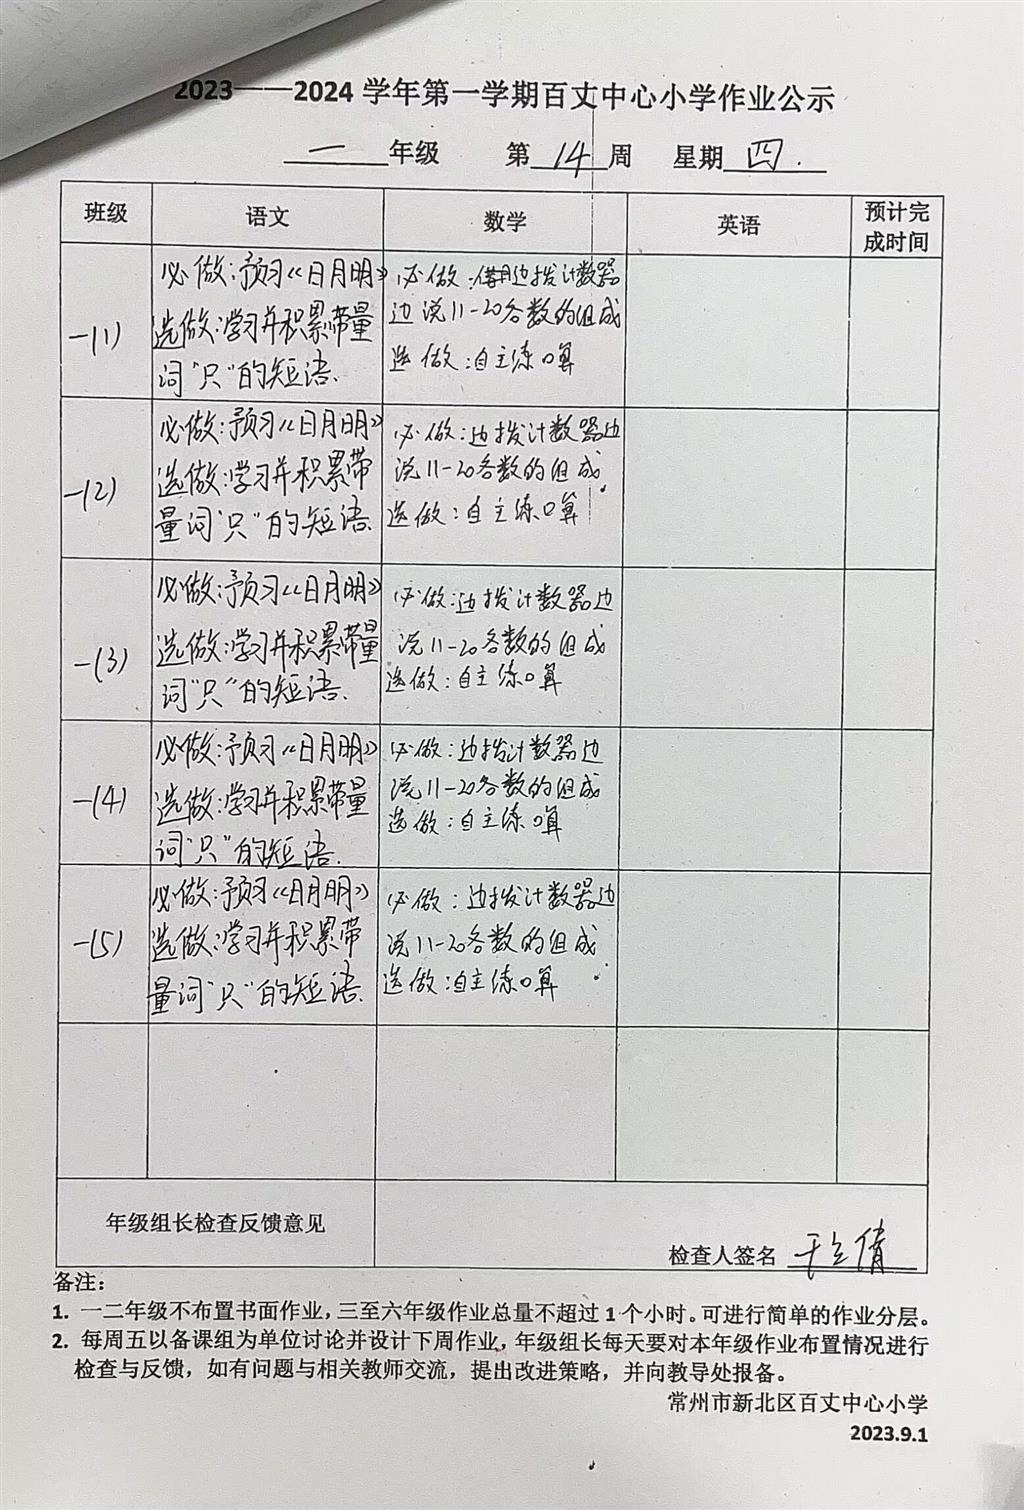 2023——2024 学年第一学期百丈中心小学作业公示
一 年级 第 14 周 星期 四.
班级 语文 数学 英语 预计完
成时间
一(1)
必做:预习《日月明》
选做:学习并积累带量
词“只”的短语.
必做:借用边拨计数器
边说11-20各数的组成
选做:自主练口算
一(2)
必做:预习《日月明》
选做:学习并积累带
量词“只”的短语.
必做:边拨计数器边
说11-20各数的组成
选做:自主练口算
一(3)
必做:预习《日月明》
选做:学习并积累带量
词“只”的短语.
必做:边拨计数器边
说11-20各数的组成
选做:自主练口算
一(4)
必做:预习《日月明》
选做:学习并积累带量
词“只”的短语.
必做:边拨计数器边
说11-20各数的组成
选做:自主练口算
一(5)
必做:预习《日月明》
选做:学习并积累带
量词“只”的短语.
必做:边拨计数器边
说11-20各数的组成
选做:自主练口算
年级组长检查反馈意见
检查人签名
备注:
1. 一二年级不布置书面作业,三至六年级作业总量不超过 1 个小时。可进行简单的作业分层。
2. 每周五以备课组为单位讨论并设计下周作业,年级组长每天要对本年级作业布置情况进行
检查与反馈,如有问题与相关教师交流,提出改进策略,并向教导处报备。
常州市新北区百丈中心小学
2023.9.1